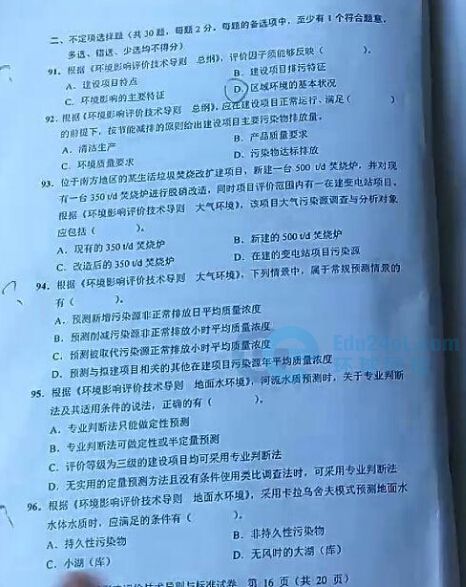 二、不定项选择题（共30题，每题2分。每题的备选项中，至少有1个符合题意，
多选、错选、少选均不得分）
91. 根据《环境影响评价技术导则 总纲》，评价因子须能够反映（ ）。
A. 建设项目特点
B. 建设项目排污特征
C. 环境影响的主要特征
D. 区域环境的基本状况
92. 根据《环境影响评价技术导则 总纲》，应在建设项目正常运行、满足（ ）
的前提下，按节能减排的原则给出建设项目主要污染物排放量。
A. 清洁生产
B. 产品质量要求
C. 环境质量要求
D. 污染物达标排放
93. 位于南方地区的某生活垃圾焚烧改扩建项目，新建一台500 t/d焚烧炉，并对现
有一台350 t/d焚烧炉进行脱硝改造，同时项目评价范围内有一在建变电站项目。
根据《环境影响评价技术导则 大气环境》，该项目大气污染源调查与分析对象
应包括（ ）。
A. 现有的350 t/d焚烧炉
B. 新建的500 t/d焚烧炉
C. 改造后的350 t/d焚烧炉
D. 在建的变电站项目污染源
94. 根据《环境影响评价技术导则 大气环境》，下列情景中，属于常规预测情景的
有（ ）。
A. 预测新增污染源非正常排放日平均质量浓度
B. 预测削减污染源非正常排放小时平均质量浓度
C. 预测被取代污染源正常排放小时平均质量浓度
D. 预测与拟建项目相关的其他在建项目污染源年平均质量浓度
Edu24ol.com
95. 根据《环境影响评价技术导则 地面水环境》，河流水质预测时，关于专业判断
法及其适用条件的说法，正确的有（ ）。
A. 专业判断法只能做定性预测
B. 专业判断法可做定性或半定量预测
C. 评价等级为三级的建设项目均可采用专业判断法
D. 无实用的定量预测方法且没有条件使用类比调查法时，可采用专业判断法
96. 根据《环境影响评价技术导则 地面水环境》，采用卡拉乌舍夫模式预测地面水
水体水质时，应满足的条件有（ ）。
A. 持久性污染物
B. 非持久性污染物
C. 小湖（库）
D. 无风时的大湖（库）
技术导则与标准试卷 第16页（共20页）